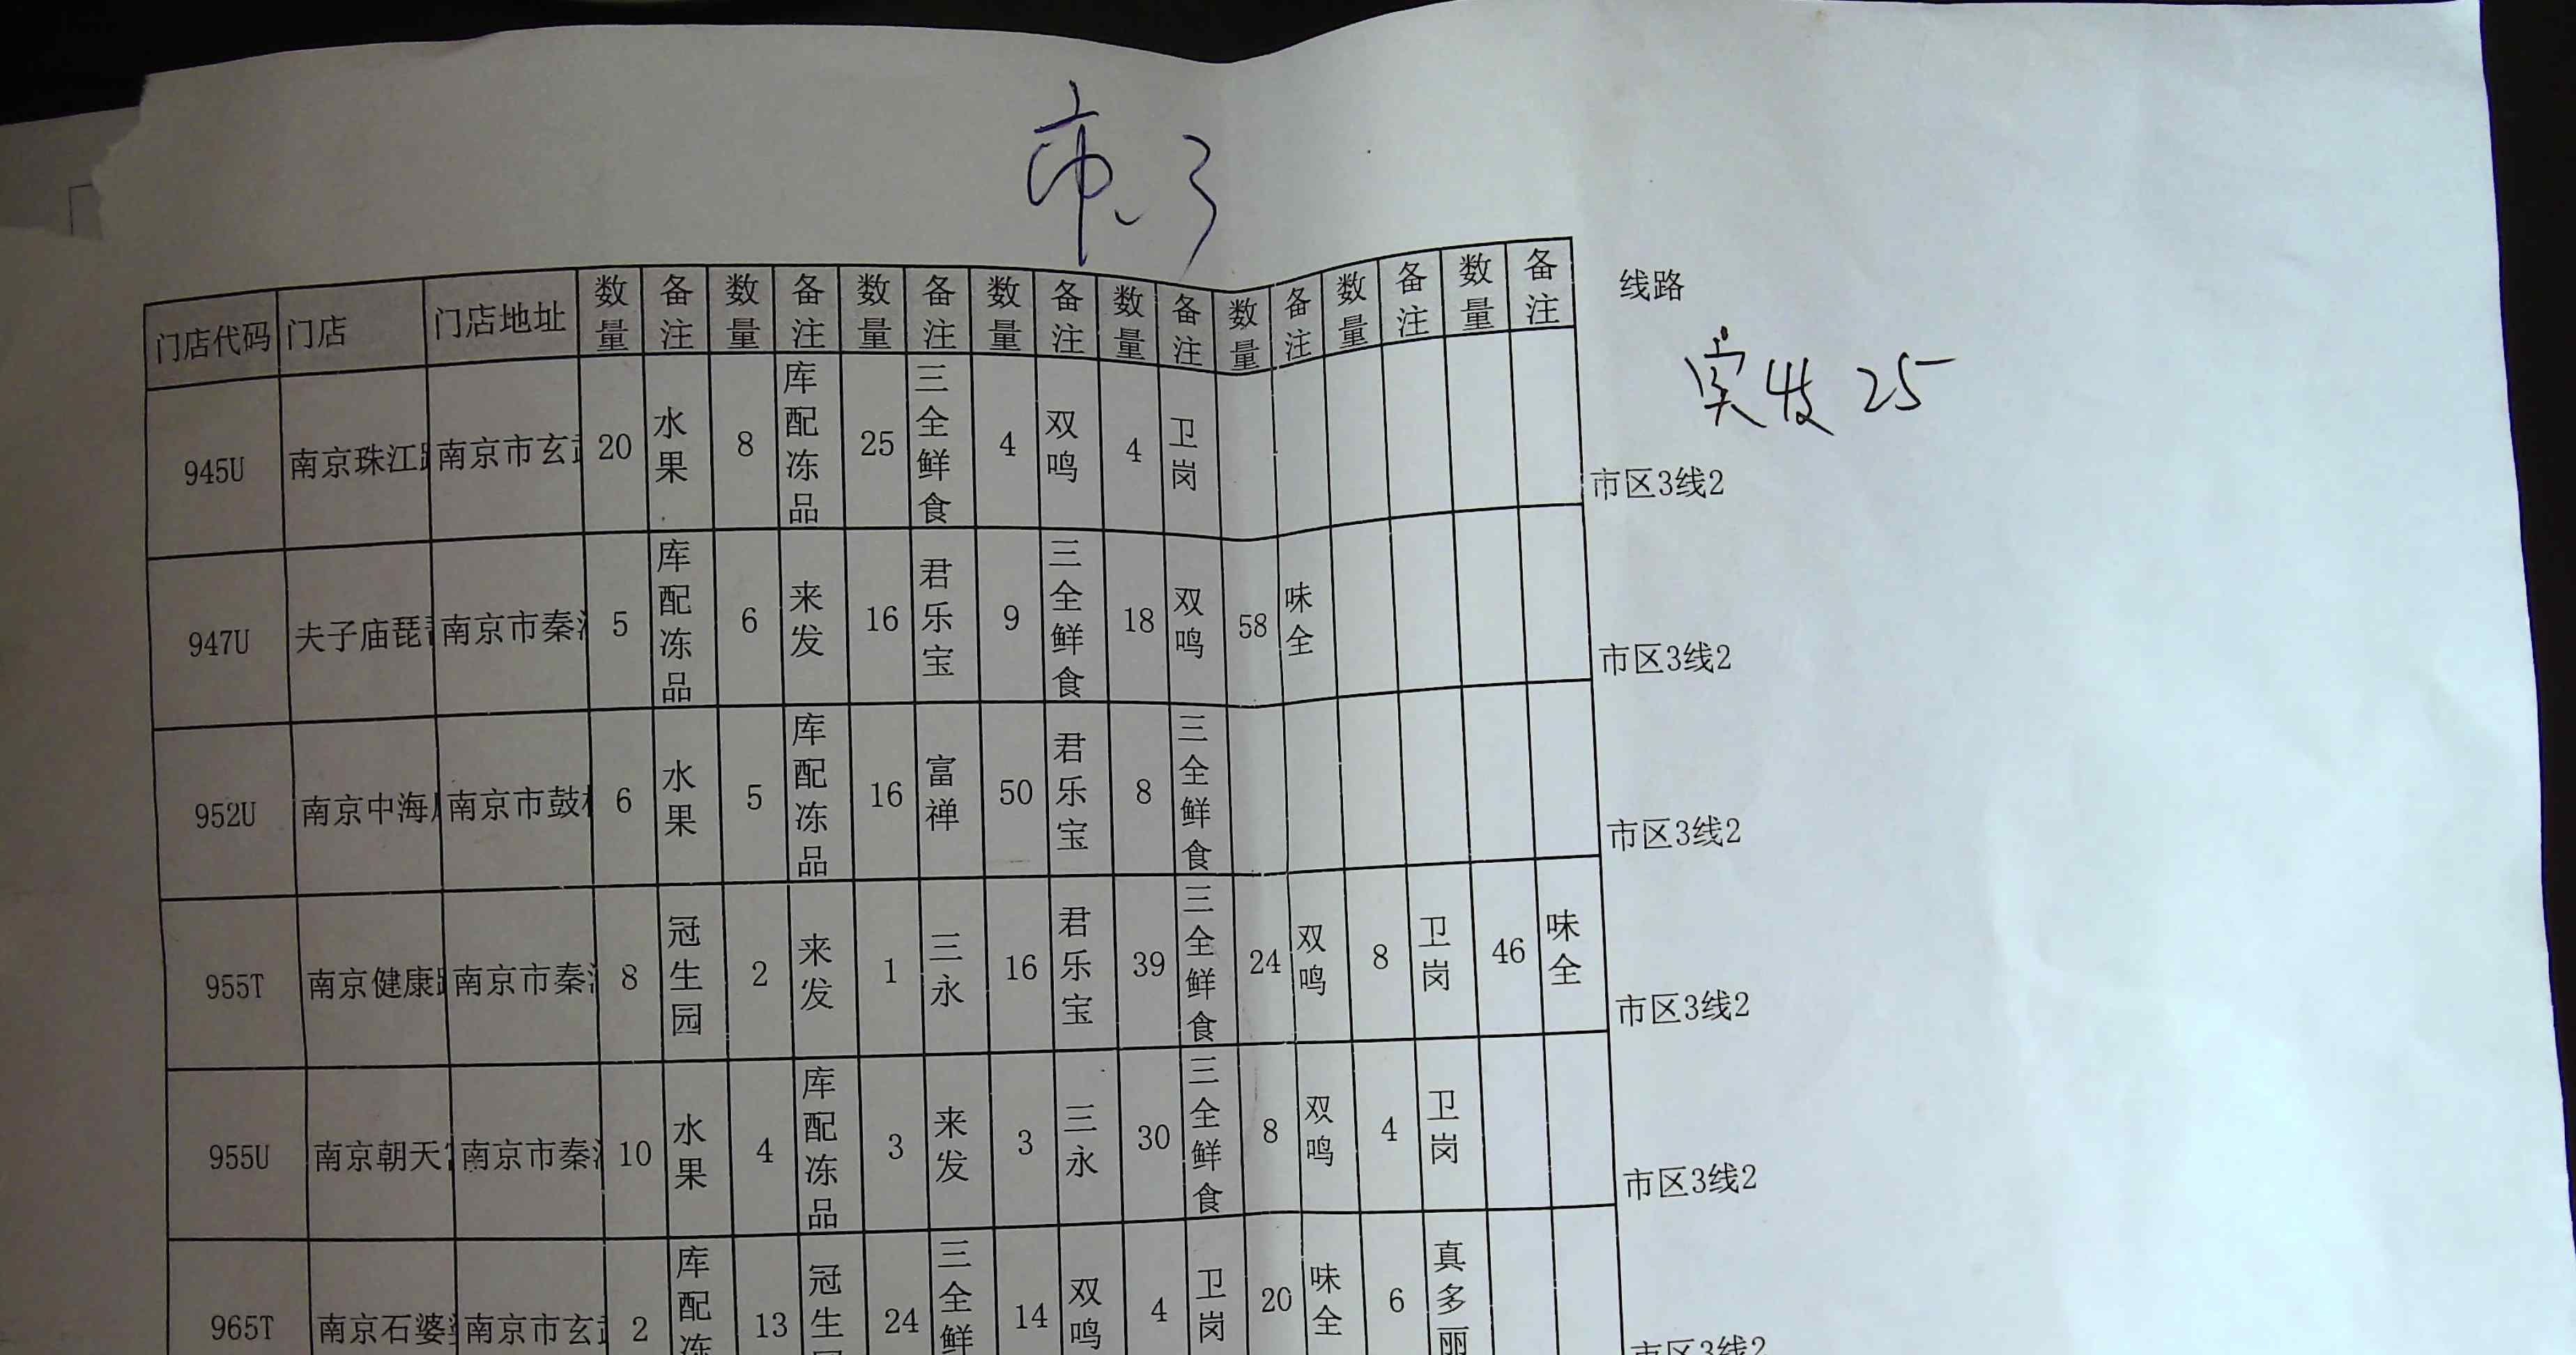 市、3
门店代码 门店 门店地址 数量 备注 数量 备注 数量 备注 数量 备注 数量 备注 数量 备注 数量 备注 数量 备注 线路
实收25
945U 南京珠江路 南京市玄武 20 水果 8 库配冻品 25 三全鲜食 4 双鸣 4 卫岗 市区3线2
947U 夫子庙琵 南京市秦 5 库配冻品 6 来发 16 君乐宝 9 三全鲜食 18 双鸣 58 味全 市区3线2
952U 南京中海 南京市鼓 6 水果 5 库配冻品 16 富禅 50 君乐宝 8 三全鲜食 市区3线2
955T 南京健康路 南京市秦 8 冠生园 2 来发 1 三永 16 君乐宝 39 三全鲜食 24 双鸣 8 卫岗 46 味全 市区3线2
955U 南京朝天 南京市秦 10 水果 4 库配冻品 3 来发 3 三永 30 三全鲜食 8 双鸣 4 卫岗 市区3线2
965T 南京石婆 南京市玄武 2 库配冻 13 冠生 24 三全鲜 14 双鸣 4 卫岗 20 味全 6 真多丽 市区3线2